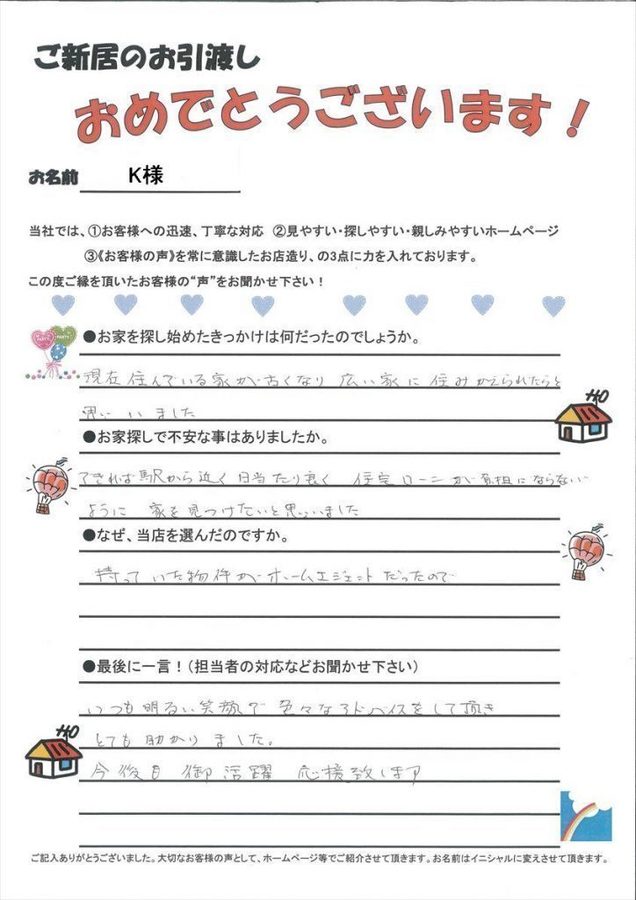 ご新居のお引渡し
おめでとうございます！
お名前 K様
当社では、①お客様への迅速、丁寧な対応 ②見やすい・探しやすい・親しみやすいホームページ
③《お客様の声》を常に意識したお店造り、の3点に力を入れております。
この度ご縁を頂いたお客様の“声”をお聞かせ下さい！
●お家を探し始めたきっかけは何だったのでしょうか。
現在住んでいる家が古くなり 広い家に住みかえられたらと
思いいました
●お家探しで不安な事はありましたか。
できれば駅から近く日当たり良く 住宅ローンが負担にならない
ように 家を見つけたいと思いいました
●なぜ、当店を選んだのですか。
持っていた物件がホームエジェットだったので
●最後に一言！（担当者の対応などお聞かせ下さい）
いつも明るい笑顔で色々なアドバイスをして頂き
とても助かりました。
今後も御活躍 応援致します
ご記入ありがとうございました。大切なお客様の声として、ホームページ等でご紹介させて頂きます。お名前はイニシャルに変えさせて頂きます。